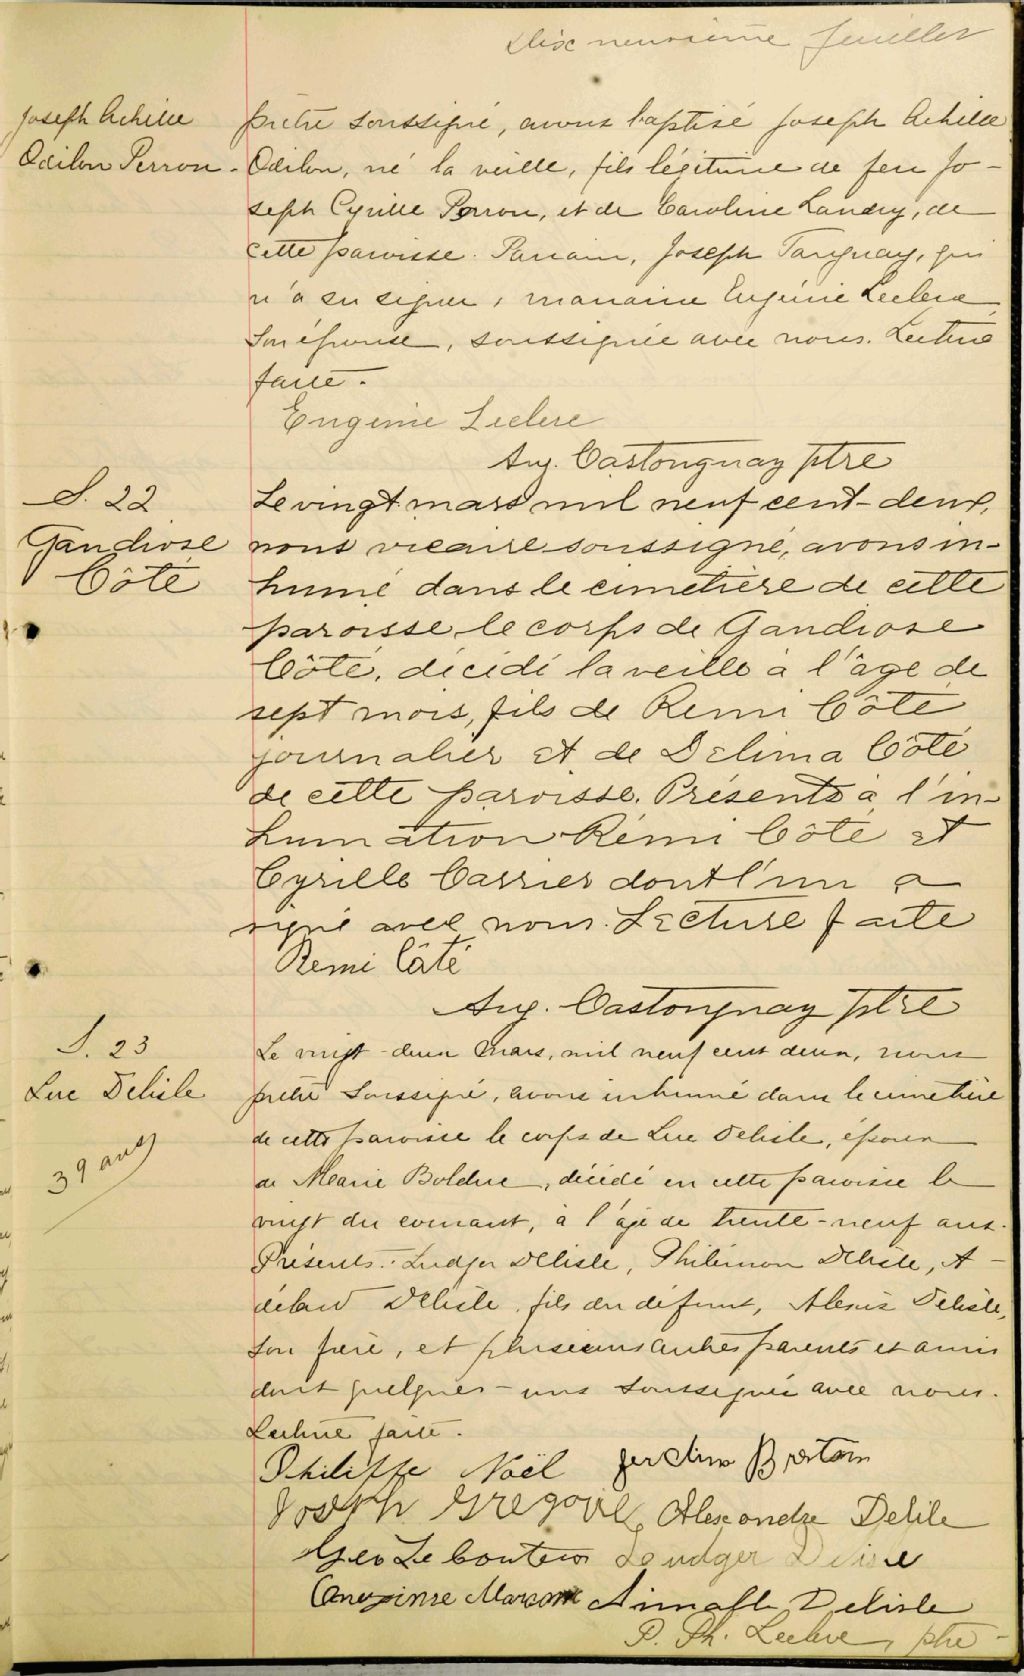 Dix neuvième feuillet
Joseph Achille
Odilon Perron.
prêtre soussigné, avons baptisé Joseph Achille
Odilon, né la veille, fils légitime de feu Jo-
seph Cyrille Perron, et de Caroline Landry, de
cette paroisse. Parrain, Joseph Tanguay, qui
n'a su signer, marraine Eugénie Leclerc
son épouse, soussignée avec nous. Lecture
faite.
Eugénie Leclerc
Aug. Castonguay ptre
S. 22
Gandiose
Côté
Le vingt mars mil neuf cent-deux,
nous vicaire soussigné, avons in-
humé dans le cimetière de cette
paroisse, le corps de Gandiose
Côté, décédé la veille à l'âge de
sept mois, fils de Remi Côté
journalier et de Delima Côté
de cette paroisse. Présents à l'in-
humation Rémi Côté et
Cyrille Carrier dont l'un a
signé avec nous. Lecture faite
Remi Côté
Aug. Castonguay ptre
S. 23
Luc Delisle
39 ans
Le vingt-deux mars, mil neuf cent deux, nous
prêtre soussigné, avons inhumé dans le cimetière
de cette paroisse le corps de Luc Delisle, époux
de Marie Bolduc, décédé en cette paroisse le
vingt du courant, à l'âge de trente-neuf ans.
Présents: Ludger Delisle, Philémon Delisle, A-
délard Delisle, fils du défunt, Alexis Delisle,
son frère, et plusieurs autres parents et amis
dont quelques-uns soussignés avec nous.
Lecture faite.
Philippe Noël
Joseph Gregoire Alexandre Delile
Geo Le bouteur Loudger
Delisle
P. Ph. Leclerc, ptre